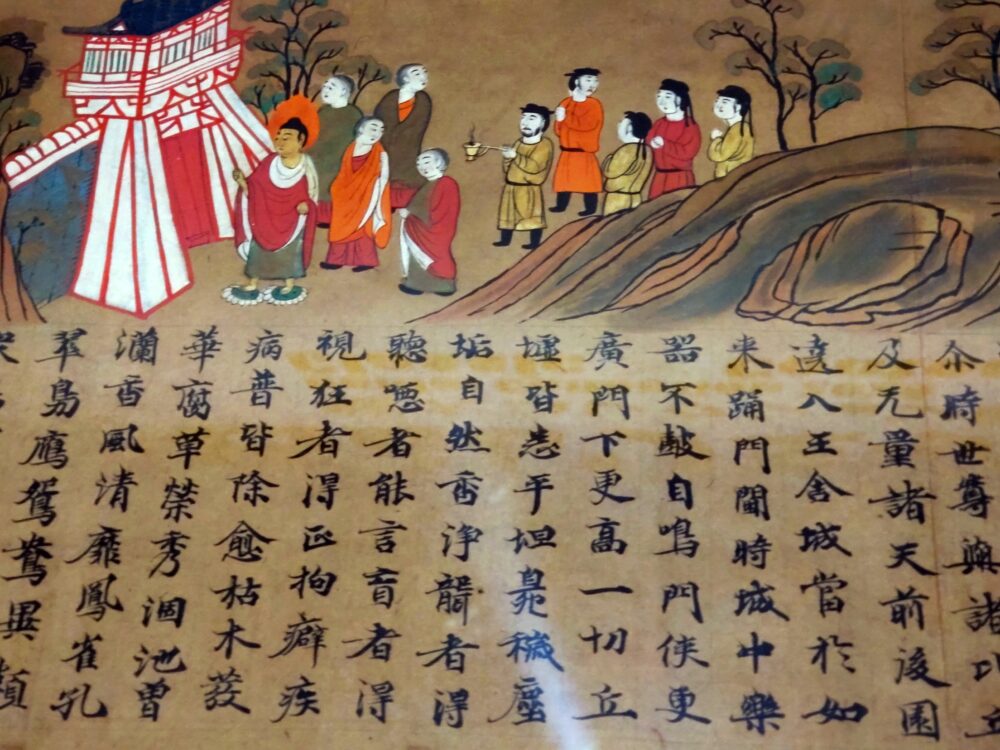 尒時世尊與諸比
及无量諸天前後圍
遶入王舍城當於如
来踊門閫時城中樂
器不皷自鳴門侠更
廣門下更高一切丘
墟皆悉平坦臰穢塵
垢自然香浄聾者得
聽者能言盲者得
視狂者得正拘癖疾
病普皆除愈枯木發
華腐草榮秀涸池曽
瀾香風清靡鳳雀孔
翠鳧鴈鴛鴦異類